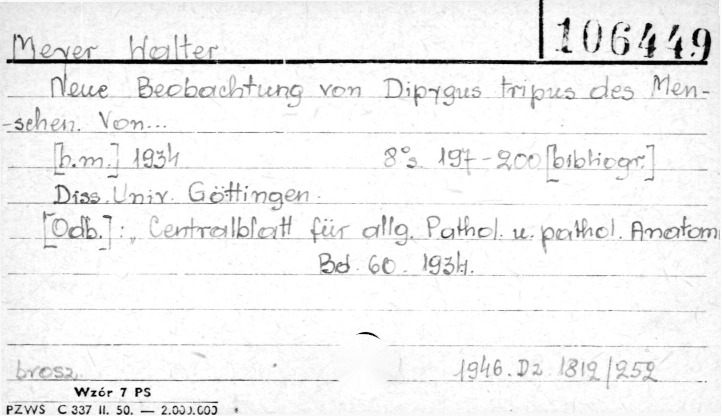 106449
Meyer Walter
Neue Beobachtung von Dipygus tripus des Men-
-schen. Von...
[b.m.] 1934 8° s. 197-200 [bibliogr.]
Diss. Univ. Göttingen.
[Odb.]: „Centralblatt für allg. Pathol. u. pathol. Anatom
Bd. 60. 1934.
brosz. 1946. Dz. 1812/252
Wzór 7 PS
PZWS C 337 II. 50. — 2.000.000